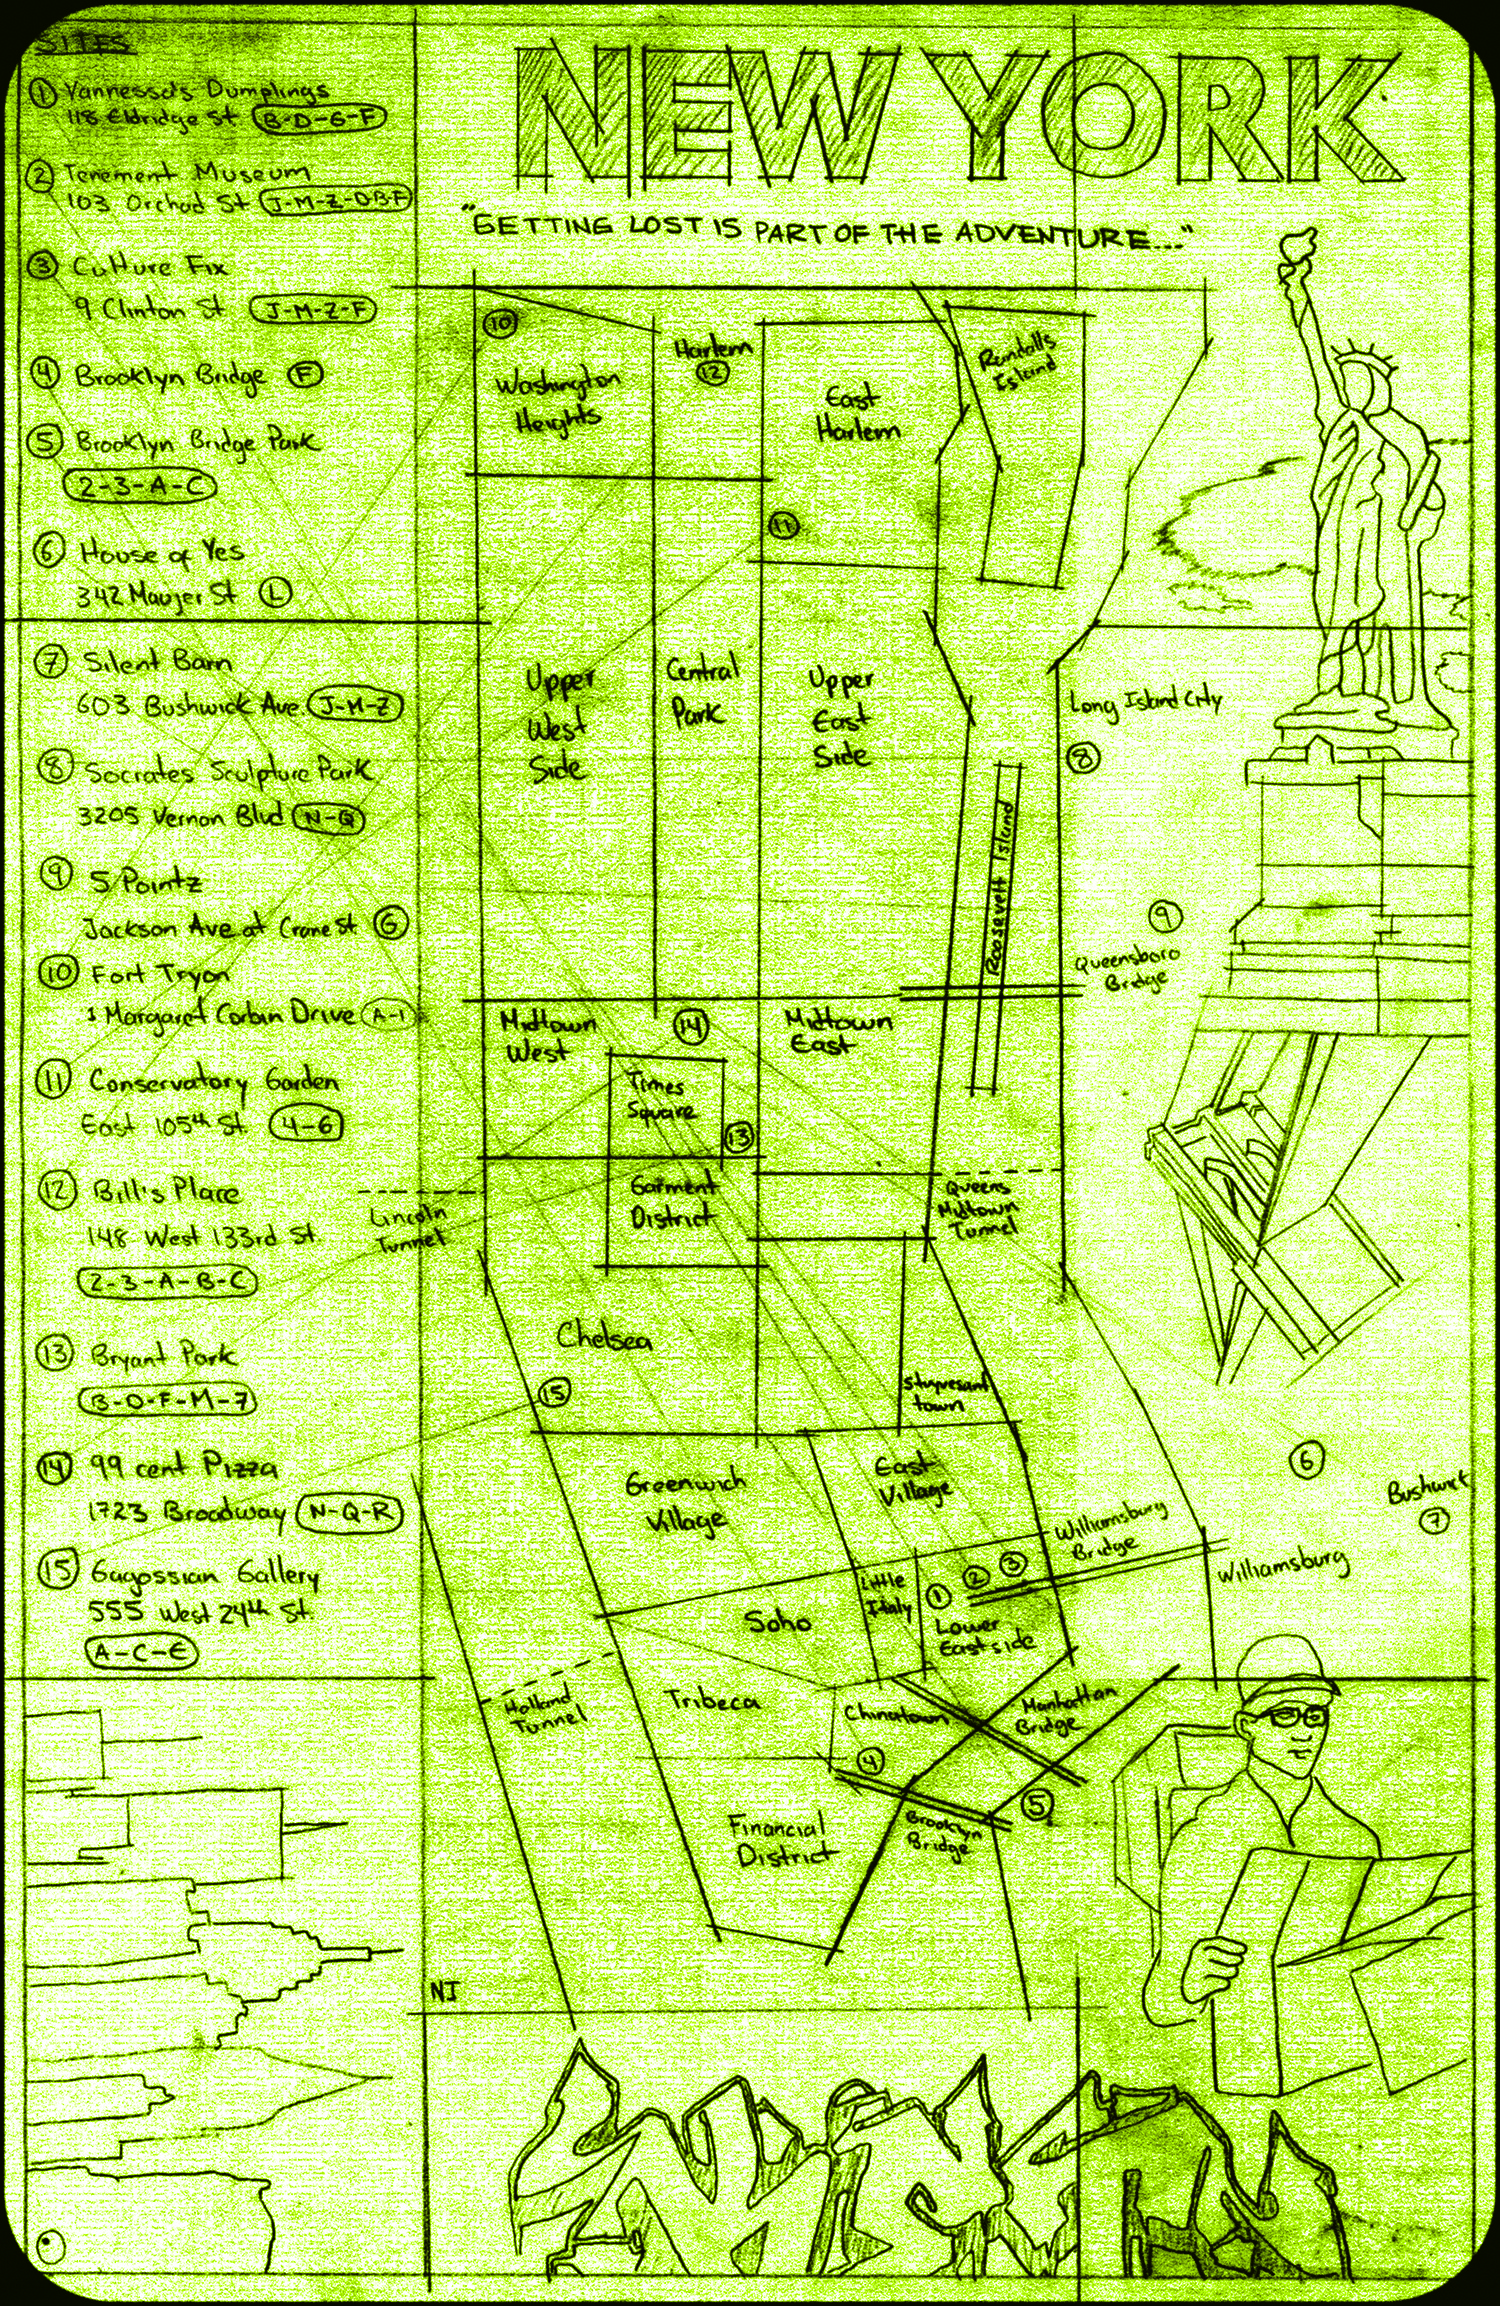 SITES
① Vannessa's Dumplings
118 Eldridge St B-D-6-F
② Tenement Museum
103 Orchad St J-M-Z-D-B-F
③ Culture Fix
9 Clinton St J-M-Z-F
④ Brooklyn Bridge F
⑤ Brooklyn Bridge Park
2-3-A-C
⑥ House of Yes
342 Maujer St L
⑦ Silent Barn
603 Bushwick Ave. J-M-Z
⑧ Socrates Sculpture Park
3205 Vernon Blvd N-Q
⑨ 5 Pointz
Jackson Ave at Crane St G
⑩ Fort Tryon
1 Margaret Corbin Drive A-1
⑪ Conservatory Garden
East 105th St. 4-6
⑫ Bill's Place
148 West 133rd St
2-3-A-B-C
⑬ Bryant Park
B-D-F-M-7
⑭ 99 cent Pizza
1723 Broadway N-Q-R
⑮ Gagossian Gallery
555 West 24th St.
A-C-E
NEW YORK
"GETTING LOST IS PART OF THE ADVENTURE..."
⑩
Washington
Heights
Harlem
⑫
East
Harlem
Randalls
Island
⑪
Upper
West
Side
Central
Park
Upper
East
Side
Long Island City
⑧
Roosevelt Island
⑨
Queensboro
Bridge
Midtown
West
⑭
Midtown
East
Times
Square
⑬
Garment
District
Lincoln
Tunnel
Queens
Midtown
Tunnel
Chelsea
⑮
Stuyvesant
town
Greenwich
Village
East
Village
⑥
Bushwick
⑦
Williamsburg
Bridge
Williamsburg
Little
Italy
① ② ③
Lower
East side
Soho
Holland
Tunnel
Tribeca
Chinatown
Manhattan
Bridge
④
⑤
Brooklyn
Bridge
Financial
District
NJ